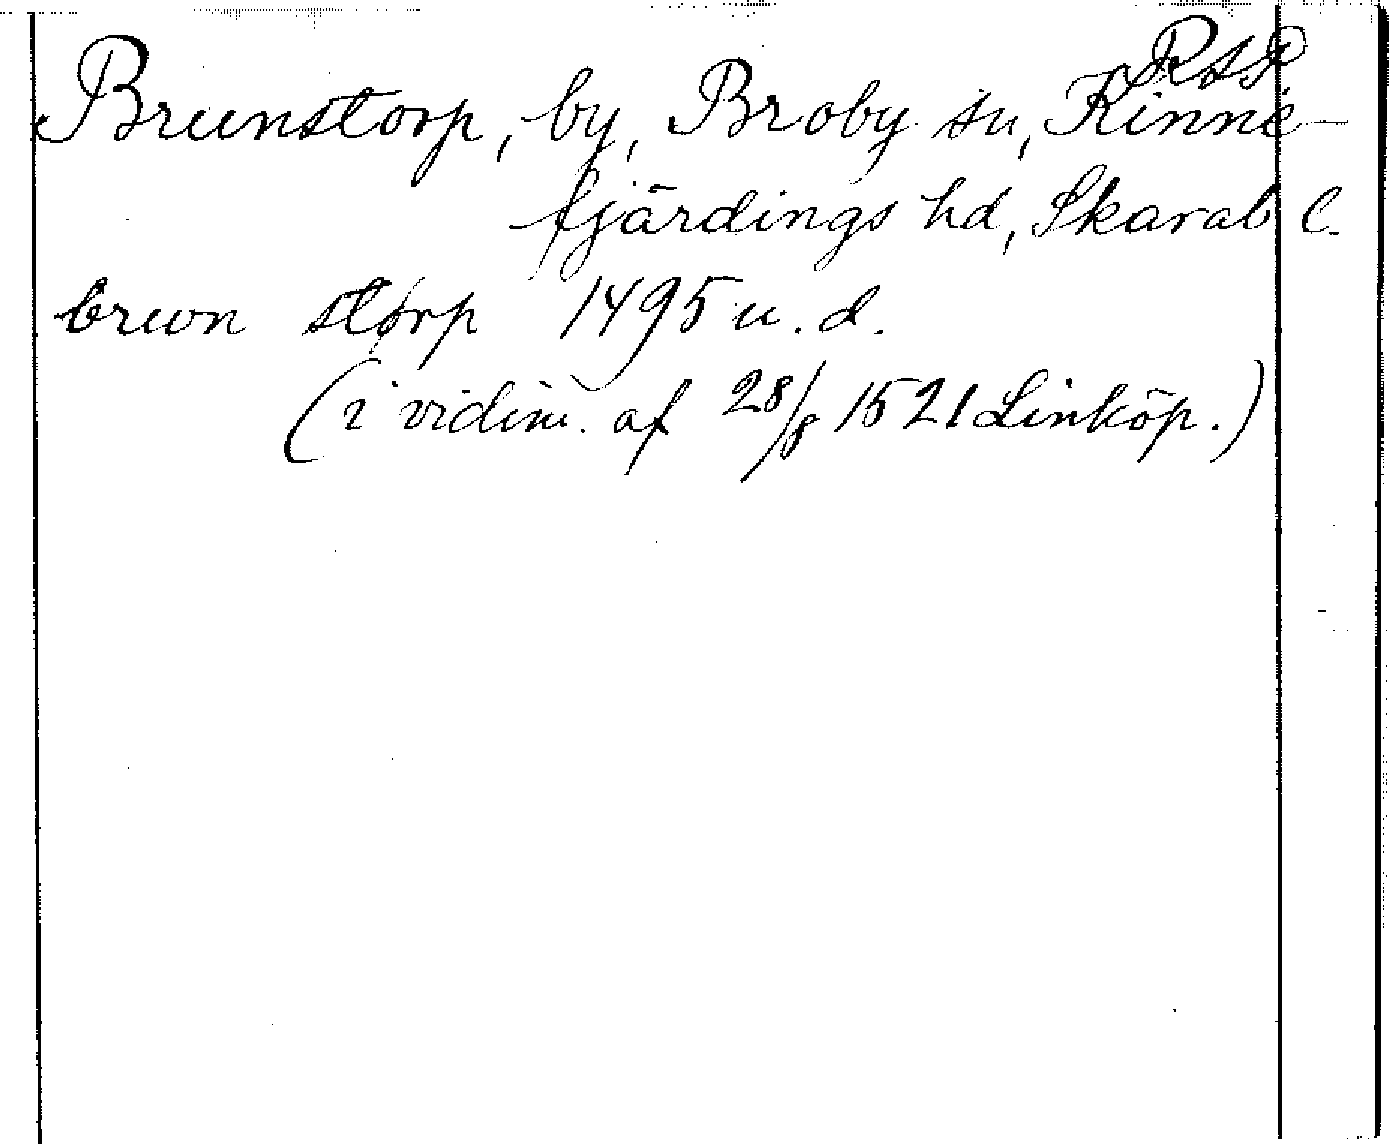 RAP
Brunstorp, by, Broby sn, Kinne-
fjärdings hd, Skarab l.
brwn storp 1495 u. d.
(i vidim. af 28/8 1521 Linköp.)